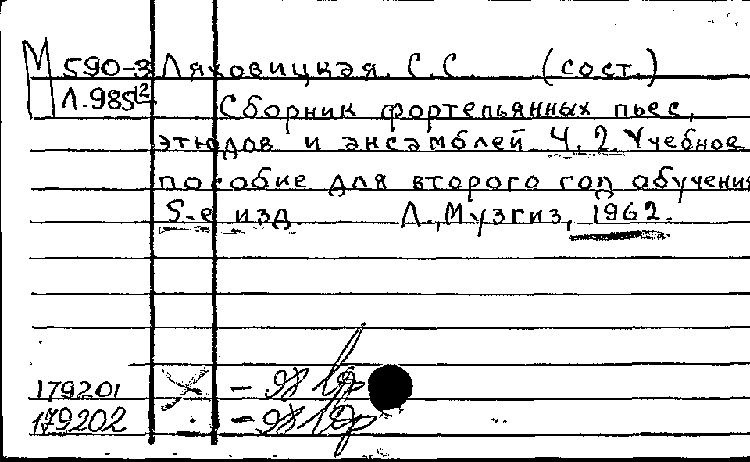 М 590-3 Ляховицкая. С.С. (сост.)
Л.985 12 Сборник фортепьянных пьес,
этюдов и ансамблей Ч. 2. Учебное
пособие для второго год обучения
5-е изд. Л., Музгиз, 1962.
179201 -
179202 -